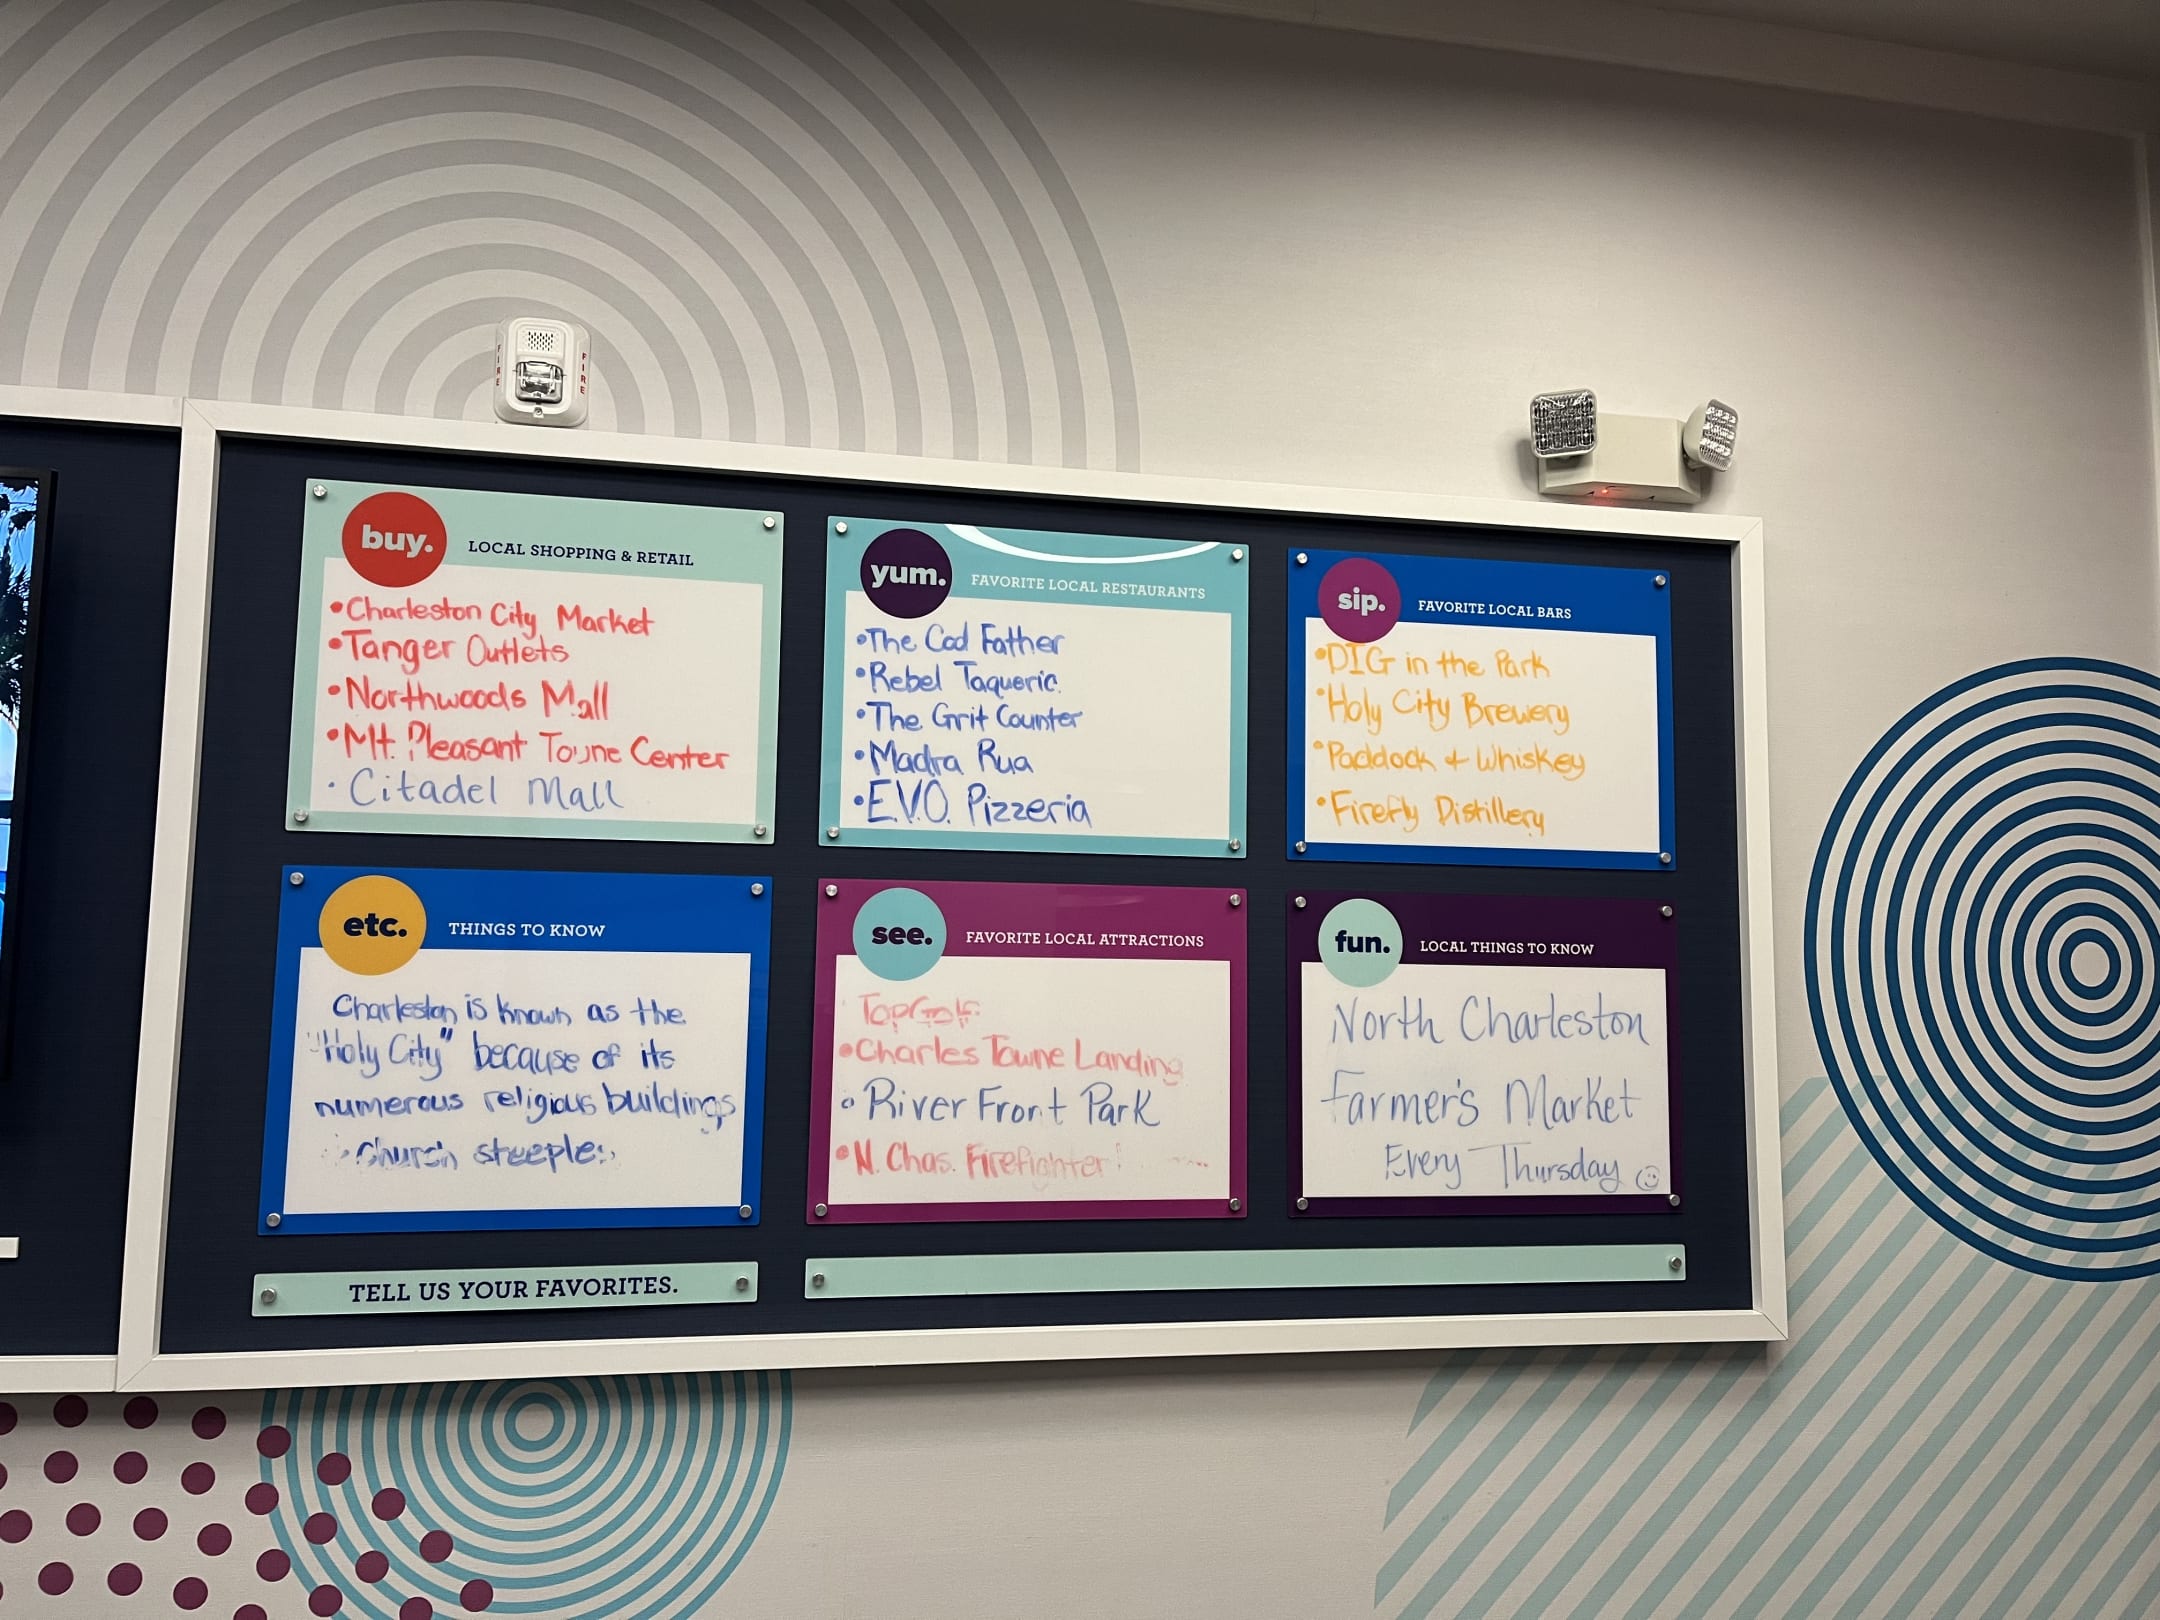 FIRE
FIRE
buy.
LOCAL SHOPPING & RETAIL
•Charleston City Market
•Tanger Outlets
•Northwoods Mall
•Mt. Pleasant Towne Center
• Citadel Mall
yum.
FAVORITE LOCAL RESTAURANTS
•The Cod Father
•Rebel Taqueria
•The Grit Counter
•Madra Rua
•E.V.O. Pizzeria
sip.
FAVORITE LOCAL BARS
•DIG in the Park
•Holy City Brewery
•Paddock & Whiskey
•Firefly Distillery
etc.
THINGS TO KNOW
Charleston is known as the
"Holy City" because of its
numerous religious buildings
church steeples
see.
FAVORITE LOCAL ATTRACTIONS
TopGolf
•Charles Towne Landing
• River Front Park
•N. Chas. Firefighter
fun.
LOCAL THINGS TO KNOW
North Charleston
Farmer's Market
Every Thursday ☺
TELL US YOUR FAVORITES.